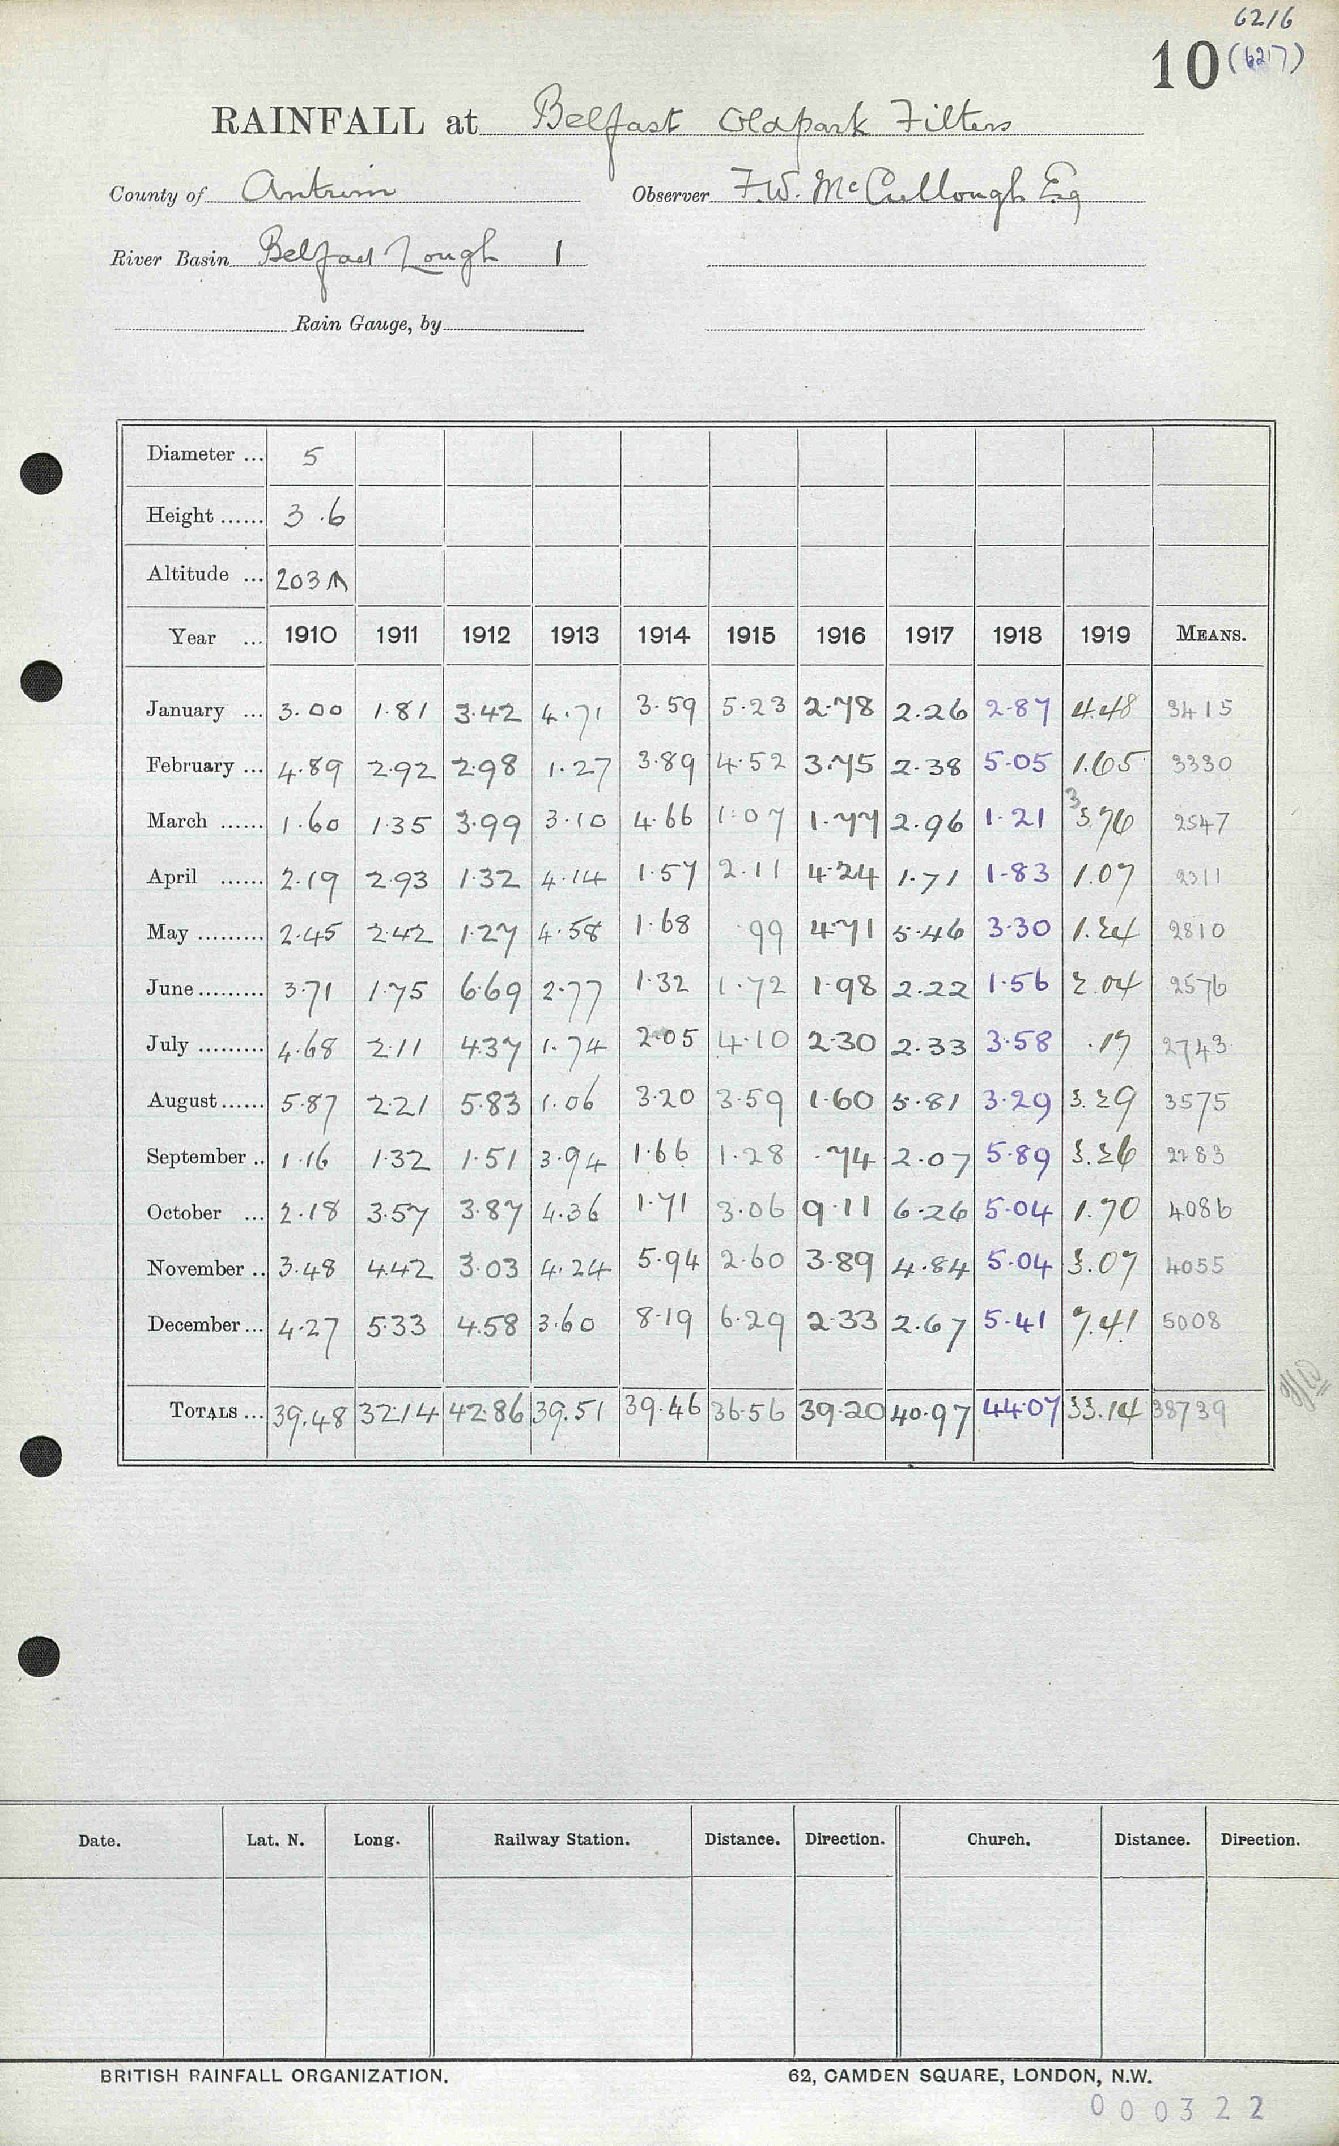 6216
10 (627)
RAINFALL at Belfast Oldpark Filters
County of Antrim Observer F.W. McCullough Esq
River Basin Belfast Lough 1
Rain Gauge, by
Diameter ... 5
Height ...... 3.6
Altitude ... 203
Year ... 1910 1911 1912 1913 1914 1915 1916 1917 1918 1919 MEANS.
January ... 3.00 1.81 3.42 4.71 3.59 5.23 2.78 2.26 2.87 4.48 3415
February ... 4.89 2.92 2.98 1.27 3.89 4.52 3.75 2.38 5.05 1.65 3330
March ...... 1.60 1.35 3.99 3.10 4.66 1.07 1.77 2.96 1.21 3.76 2547
April ...... 2.19 2.93 1.32 4.14 1.57 2.11 4.24 1.71 1.83 1.07 2311
May ......... 2.45 2.42 1.27 4.58 1.68 .99 4.71 5.46 3.30 1.24 2810
June ......... 3.71 1.75 6.69 2.77 1.32 1.72 1.98 2.22 1.56 2.04 2576
July ......... 4.68 2.11 4.37 1.74 2.05 4.10 2.30 2.33 3.58 .17 2743
August ...... 5.87 2.21 5.83 1.06 3.20 3.59 1.60 5.81 3.29 3.29 3575
September .. 1.16 1.32 1.51 3.94 1.66 1.28 .74 2.07 5.89 3.26 2283
October ... 2.18 3.57 3.87 4.36 1.71 3.06 9.11 6.26 5.04 1.70 4086
November .. 3.48 4.42 3.03 4.24 5.94 2.60 3.89 4.84 5.04 3.07 4055
December ... 4.27 5.33 4.58 3.60 8.19 6.29 2.33 2.67 5.41 7.41 5008
TOTALS ... 39.48 32.14 42.86 39.51 39.46 36.56 39.20 40.97 44.07 33.14 38739
Date. Lat. N. Long. Railway Station. Distance. Direction. Church. Distance. Direction.
BRITISH RAINFALL ORGANIZATION. 62, CAMDEN SQUARE, LONDON, N.W.
000322